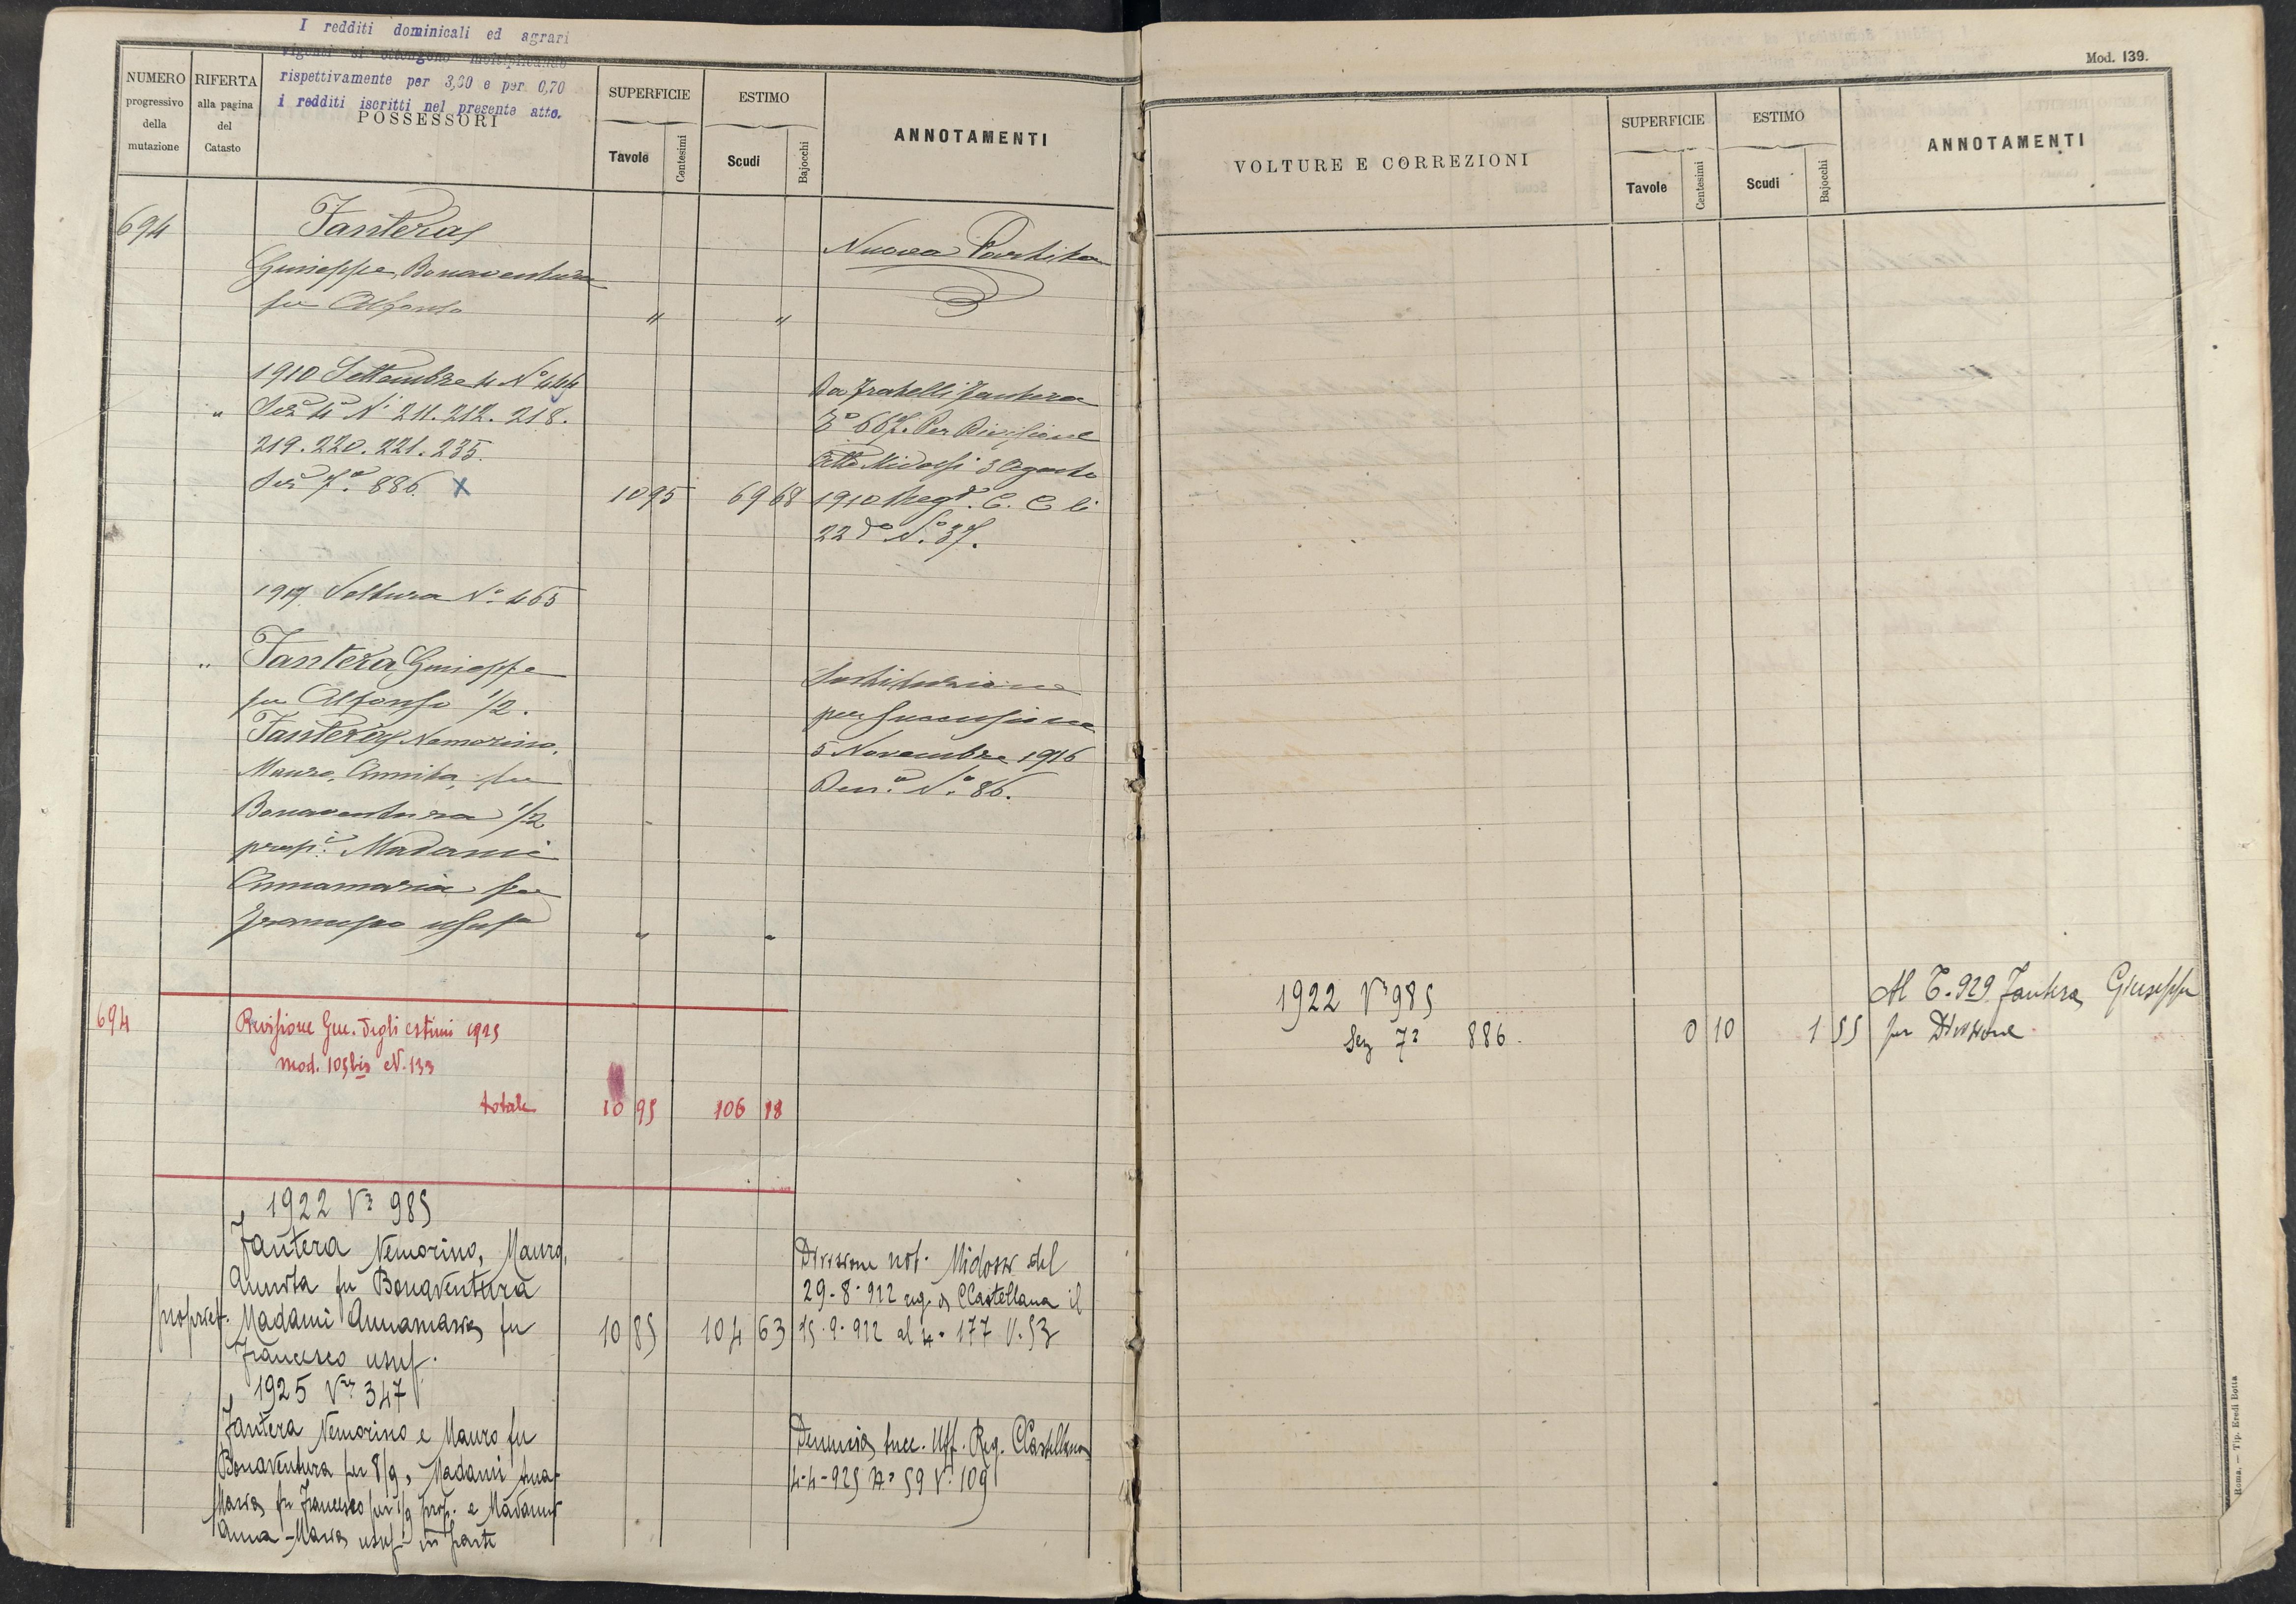 I redditi dominicali ed agrari
vigenti si ottengono moltiplicando
rispettivamente per 3,60 e per 0,70
i redditi iscritti nel presente atto.
NUMERO
progressivo
della
mutazione
RIFERTA
alla pagina
del
Catasto
POSSESSORI
SUPERFICIE
Tavole
Centesimi
ESTIMO
Scudi
Bajocchi
ANNOTAMENTI
694
Fantera
Giuseppe, Bonaventura
fu Alfonso
" "
Nuova Partita
1910 Settembre 4 N° 444
" Sez. 4ª Ni 211. 212. 218.
219. 220. 221. 235.
Sez 7ª 886. X
10 95 69 68
Da Fratelli Fantera
667. Per Divisione
Atto Midossi 3 Agosto
1910 Regto C. C. li
22 do N° 37.
Voltura N° 465
" Fantera Giuseppe
fu Alfonso 1/2.
Fantera Nemorino,
Mauro, Annita, fu
Bonaventura 1/2
propi. Madami
Annamaria fu
Francesco usuf.
Sostituzione
per Successione
5 Novembre 1916
Den. N° 86.
694
Revisione Gen. degli estimi 1925
mod. 105 bis N. 133
totale 10 95 106 18
1922 Va 985
Fantera Nemorino, Mauro,
Annita fu Bonaventura
propriet. Madami Annamaria fu
Francesco usuf.
10 85 104 63
Divisione not. Midossi del
29-8-912 reg. a CCastellana il
15-9-912 al 4. 177 V. 53
1925 Va 347
Fantera Nemorino e Mauro fu
Bonaventura per 8/9, Madami Anna
Maria fu Francesco per 1/9 prop. e Madami
Anna-Maria usuf. in parte
Denuncia succ. Uff. Reg. CCastellana
4-4-925 N° 59 V. 109
Mod. 139.
VOLTURE E CORREZIONI
SUPERFICIE
Tavole
Centesimi
ESTIMO
Scudi
Bajocchi
ANNOTAMENTI
1922 Va 985
Sez 7a 886.
0 10 1 55
Al T. 929 Fantera Giuseppe
per Divisione
Roma. — Tip. Eredi Botta